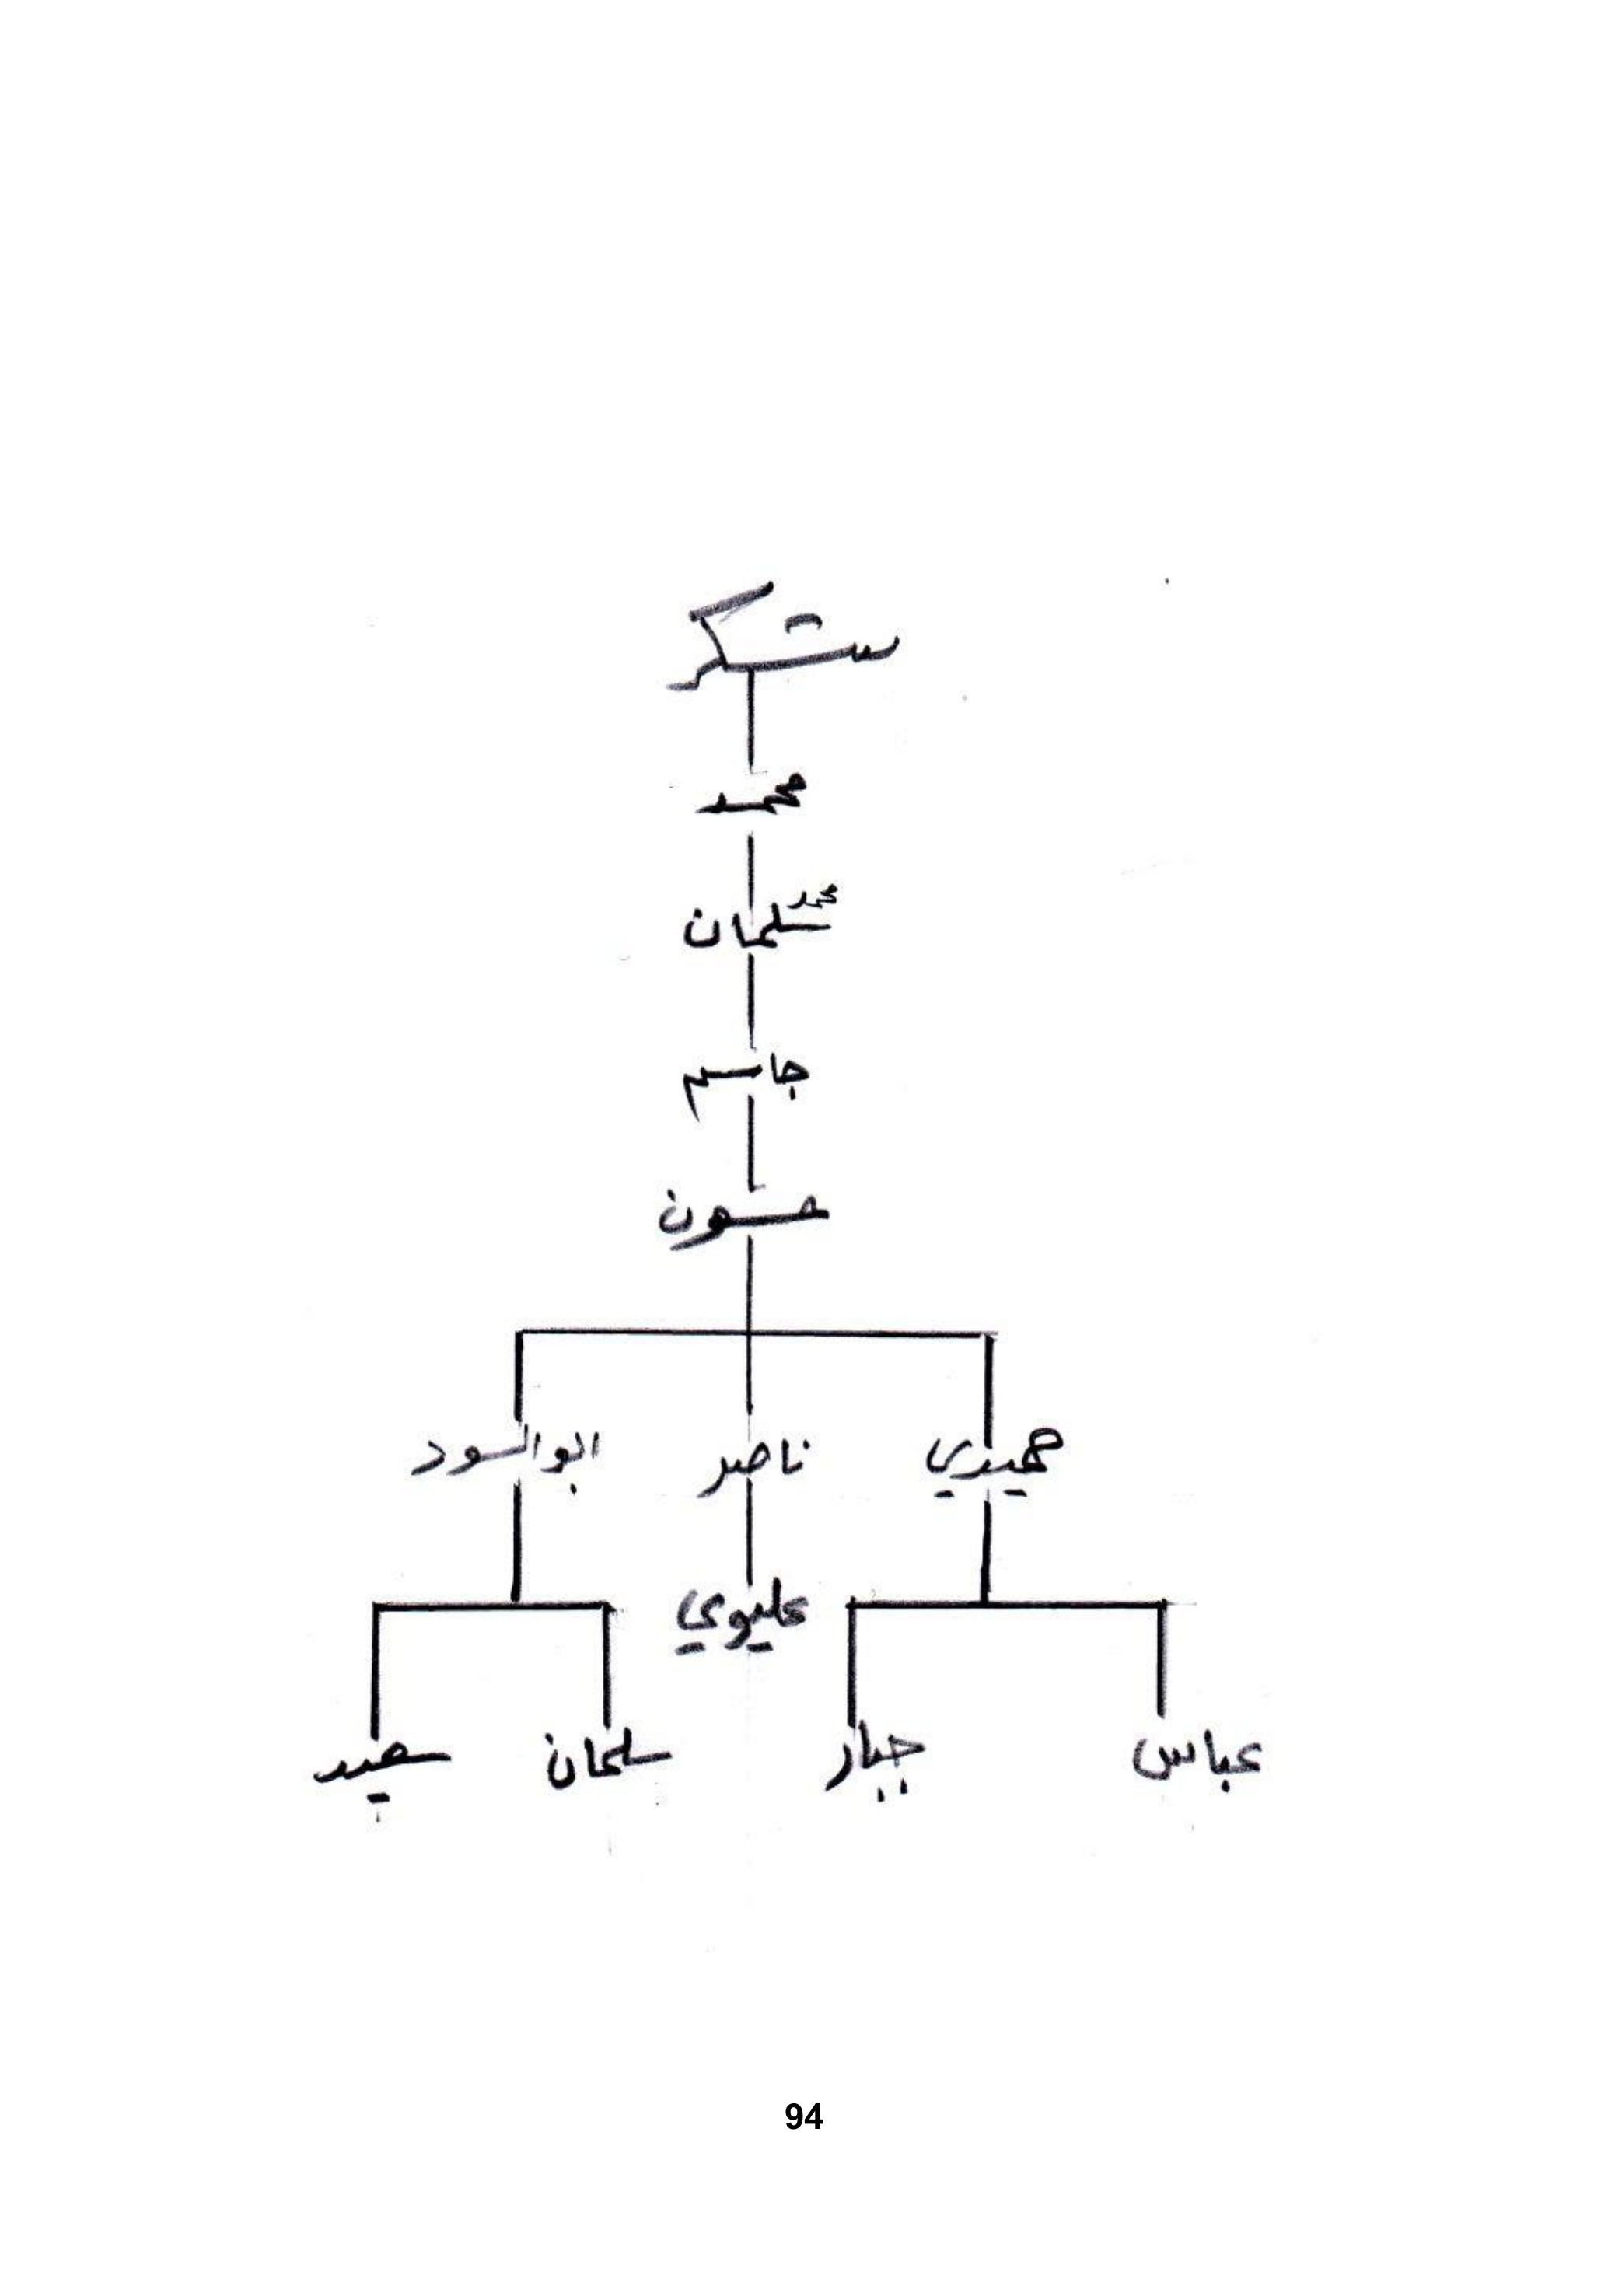 شكر
محمد
محمد
سلمان
جاسم
حسون
حميدي ناصر ابو السود
عليوي
عباس جبار سلمان سعيد
94